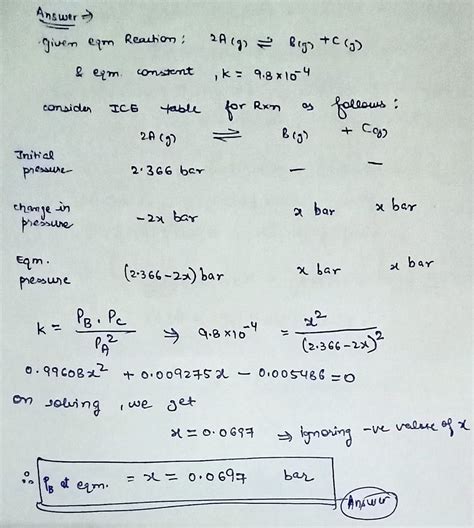 Answer →
given eqm Reaction: 2A(g) ⇌ B(g) + C(g)
& eqm. constant, k = 9.8×10⁻⁴
consider ICE table for Rxn as follows:
2A(g) ⇌ B(g) + C(g)
Initial pressure 2.366 bar — —
change in pressure -2x bar x bar x bar
Eqm. pressure (2.366-2x) bar x bar x bar
k = P_B . P_C / P_A² ⇒ 9.8×10⁻⁴ = x² / (2.366-2x)²
0.99608x² + 0.009275x - 0.005486 = 0
on solving, we get
x = 0.0697 ⇒ ignoring -ve value of x
∴ P_B at eqm. = x = 0.0697 bar
Answer